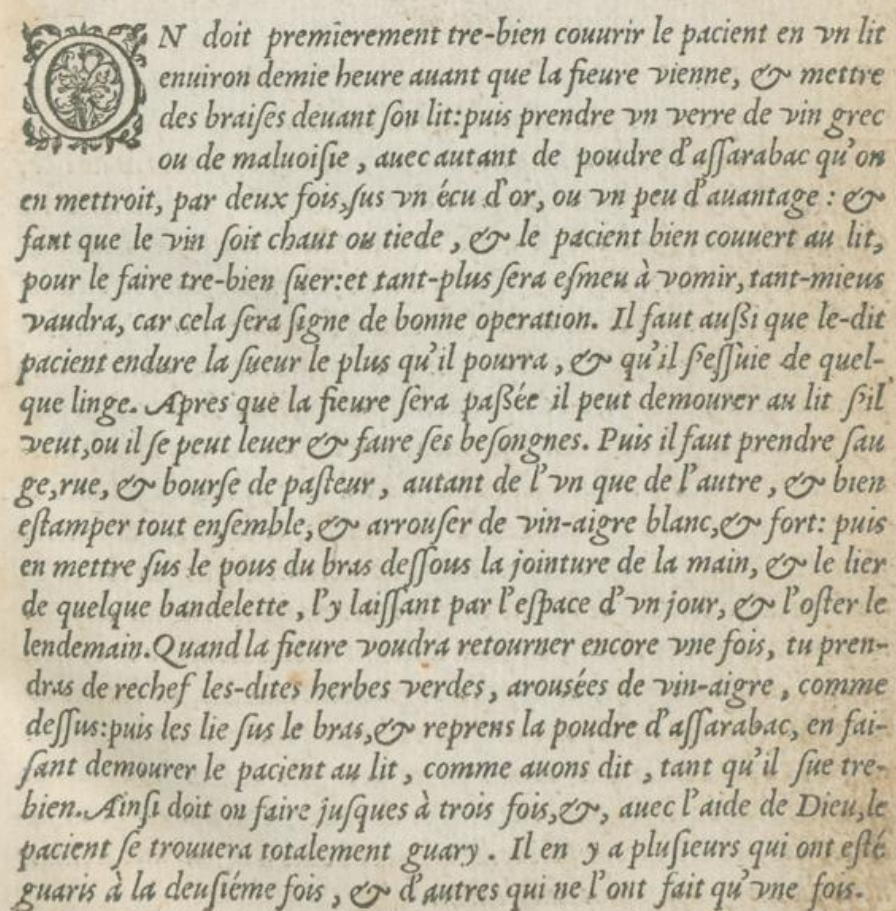 ON doit premierement tre-bien couurir le pacient en vn lit
enuiron demie heure auant que la fieure vienne, & mettre
des braiſes deuant ſon lit: puis prendre vn verre de vin grec
ou de maluoiſie, auec autant de poudre d'aſſarabac qu'on
en mettroit, par deux fois, ſus vn écu d'or, ou vn peu d'auantage : &
faut que le vin ſoit chaut ou tiede, & le pacient bien couuert au lit,
pour le faire tre-bien ſuer: et tant-plus ſera eſmeu à vomir, tant-mieus
vaudra, car cela ſera ſigne de bonne operation. Il faut außi que le-dit
pacient endure la ſueur le plus qu'il pourra, & qu'il ſ'eſſuie de quel-
que linge. Apres que la fieure ſera paßée il peut demourer au lit ſ'il
veut, ou il ſe peut leuer & faire ſes beſongnes. Puis il faut prendre ſau
ge, rue, & bourſe de paſteur, autant de l'vn que de l'autre, & bien
eſtamper tout enſemble, & arrouſer de vin-aigre blanc, & fort: puis
en mettre ſus le pous du bras deſſous la jointure de la main, & le lier
de quelque bandelette, l'y laiſſant par l'eſpace d'vn jour, & l'oſter le
lendemain. Quand la fieure voudra retourner encore vne fois, tu pren-
dras de rechef les-dites herbes verdes, arousées de vin-aigre, comme
deſſus: puis les lie ſus le bras, & reprens la poudre d'aſſarabac, en fai-
ſant demourer le pacient au lit, comme auons dit, tant qu'il ſue tre-
bien. Ainſi doit on faire juſques à trois fois, &, auec l'aide de Dieu, le
pacient ſe trouuera totalement guary. Il en y a pluſieurs qui ont eſté
guaris à la deuſiéme fois, & d'autres qui ne l'ont fait qu'vne fois.